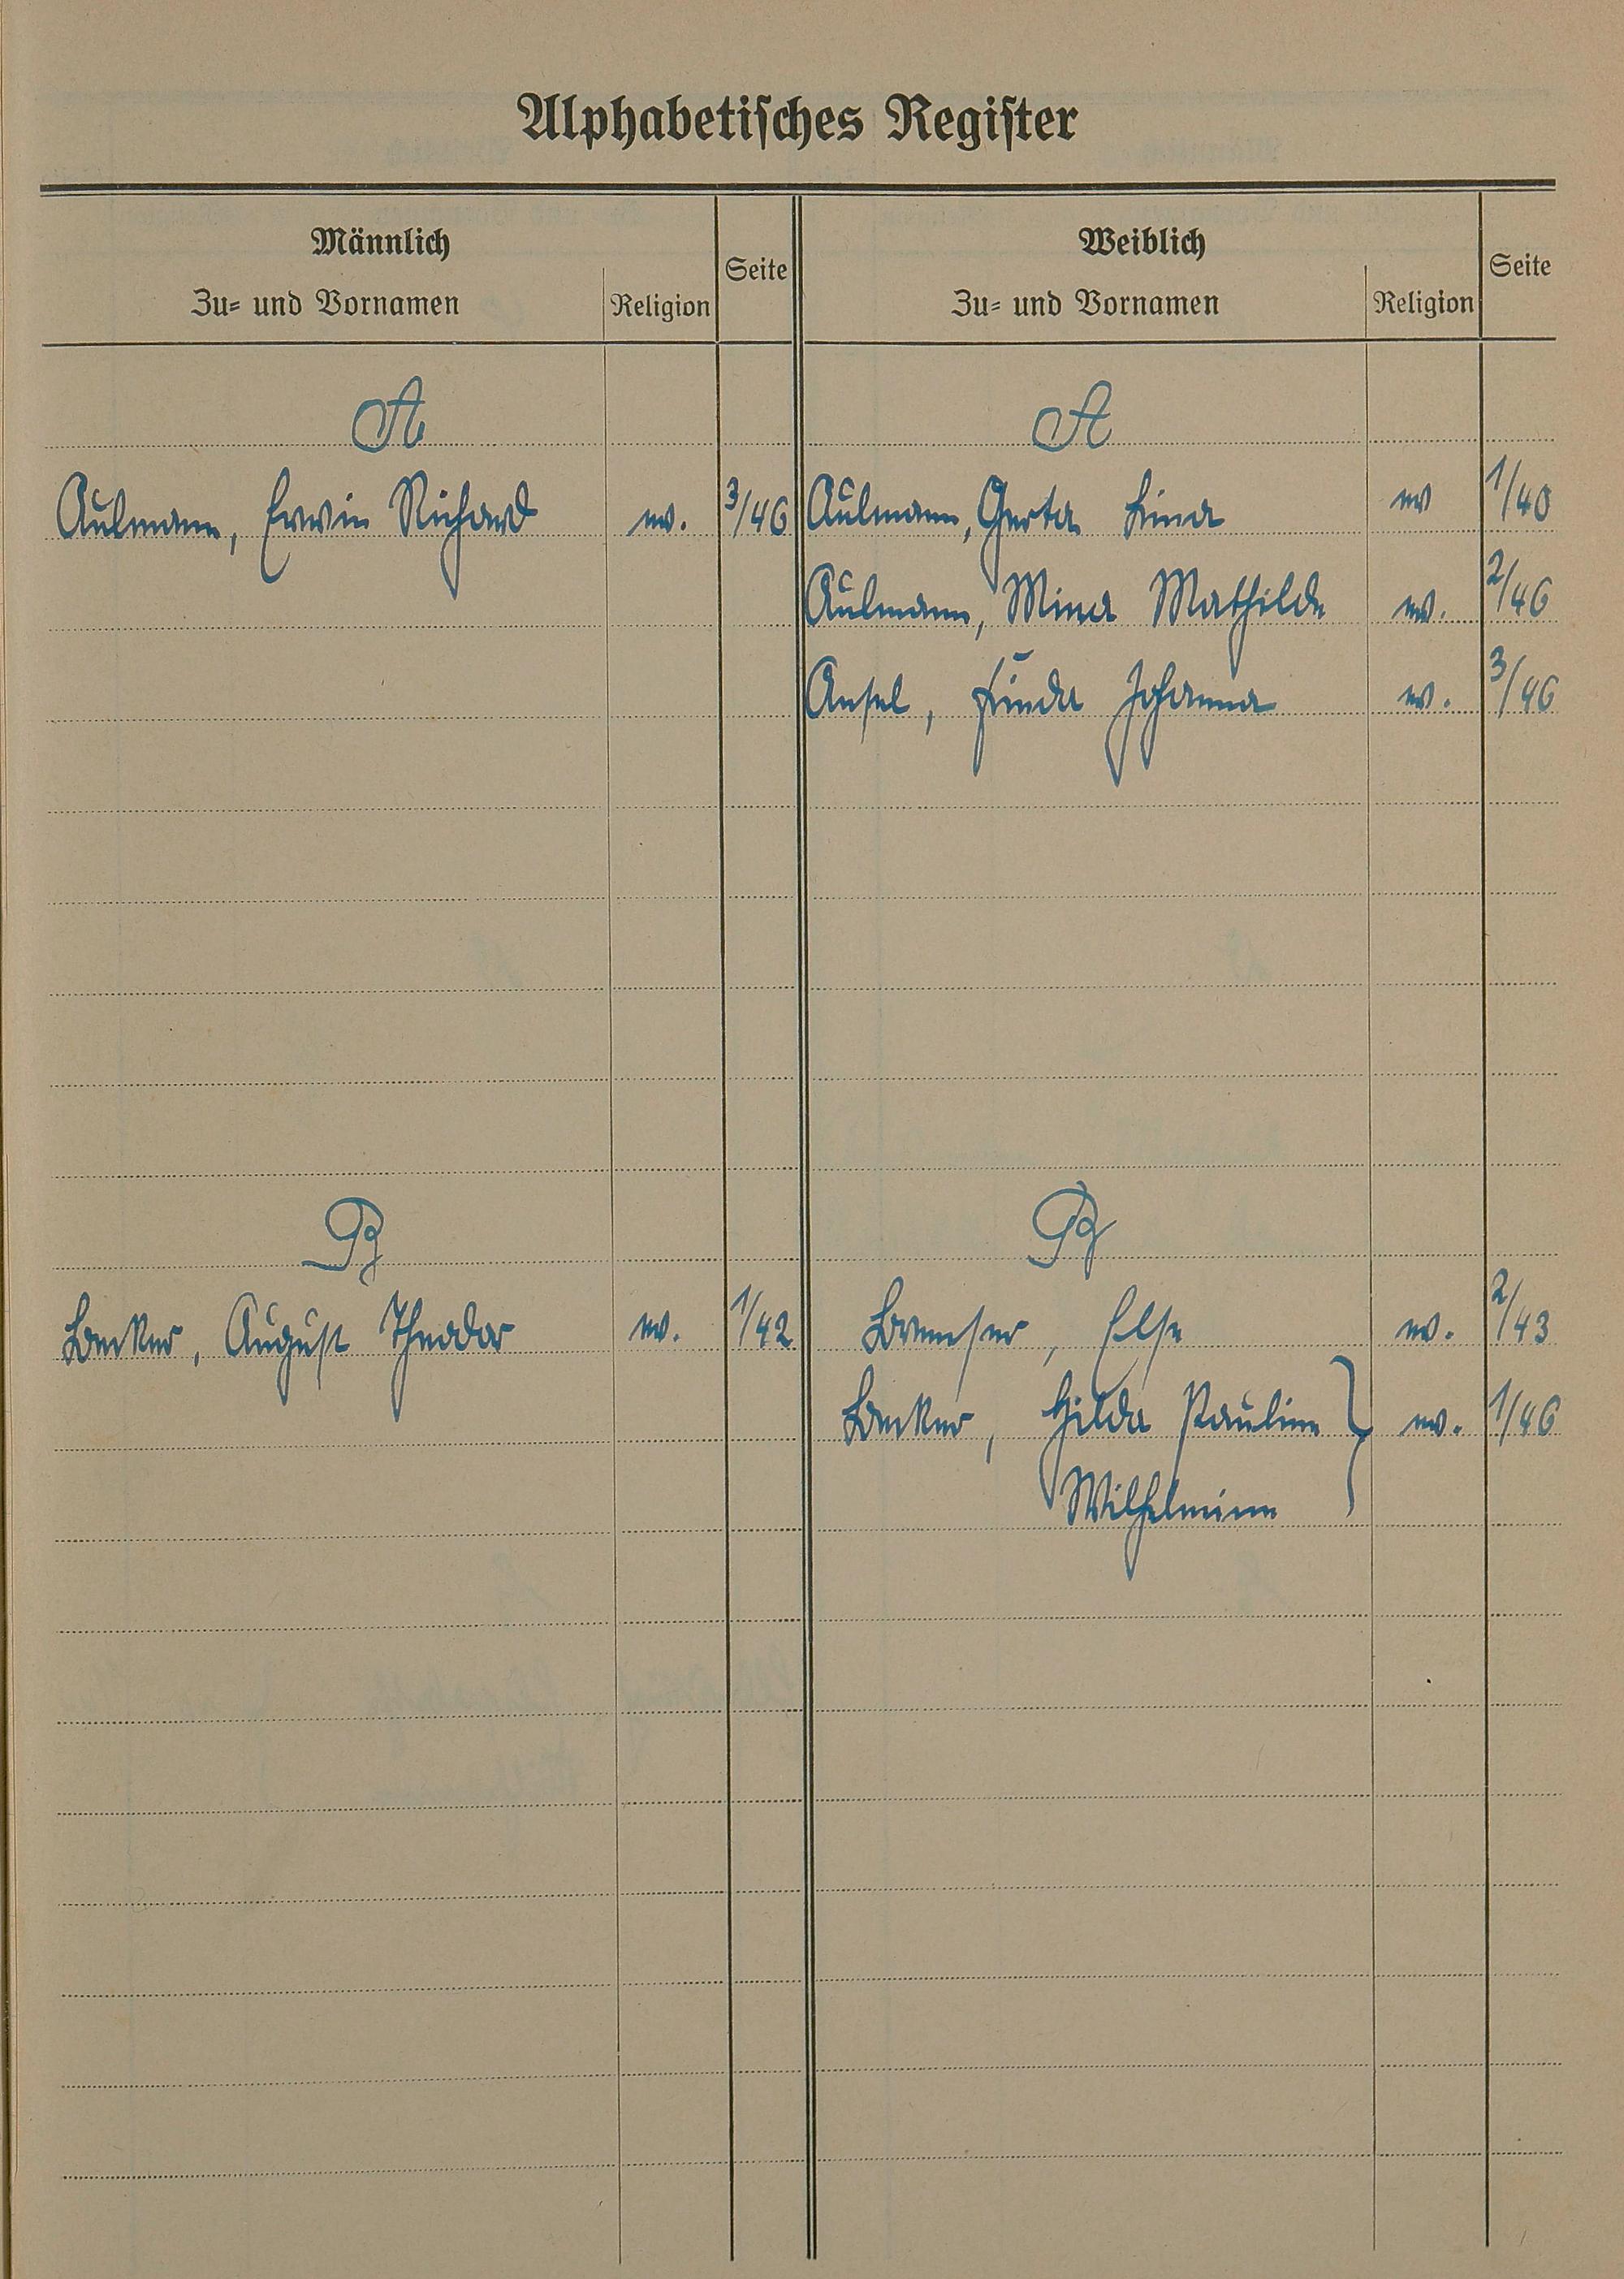 Alphabetisches Register
Männlich
Zu- und Vornamen
Religion
Seite
Weiblich
Zu- und Vornamen
Religion
Seite
A
A
Aulmann, Erwin Richard ev. 3/46
Aulmann, Gerta Lina ev 1/40
Aulmann, Mina Mathilde ev. 2/46
Ansel, Johanna ev. 3/46
B
B
Becker, August Theodor ev. 1/42
Bremser, Else ev. 2/43
Becker, Hilda Pauline ev. 1/46
Wilhelmine